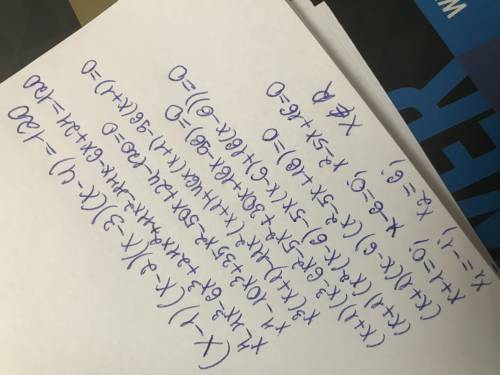 (x-1)(x-2)(x-3)(x-4)=120
x⁴-4x³-6x³+24x²+11x²-44x-6x+24=120
x⁴-10x³+35x²-50x+24-120=0
x³(x+1)-11x²(x+1)+46x(x+1)-96(x+1)=0
(x+1)(x³-6x²-5x²+30x+16x-96)=0
(x+1)(x²(x-6)-5x(x-6)+16(x-6))=0
(x+1)(x-6)(x²-5x+16)=0
x+1=0; x-6=0; x²-5x+16=0
x₁=-1; x₂=6; x∉R
WER